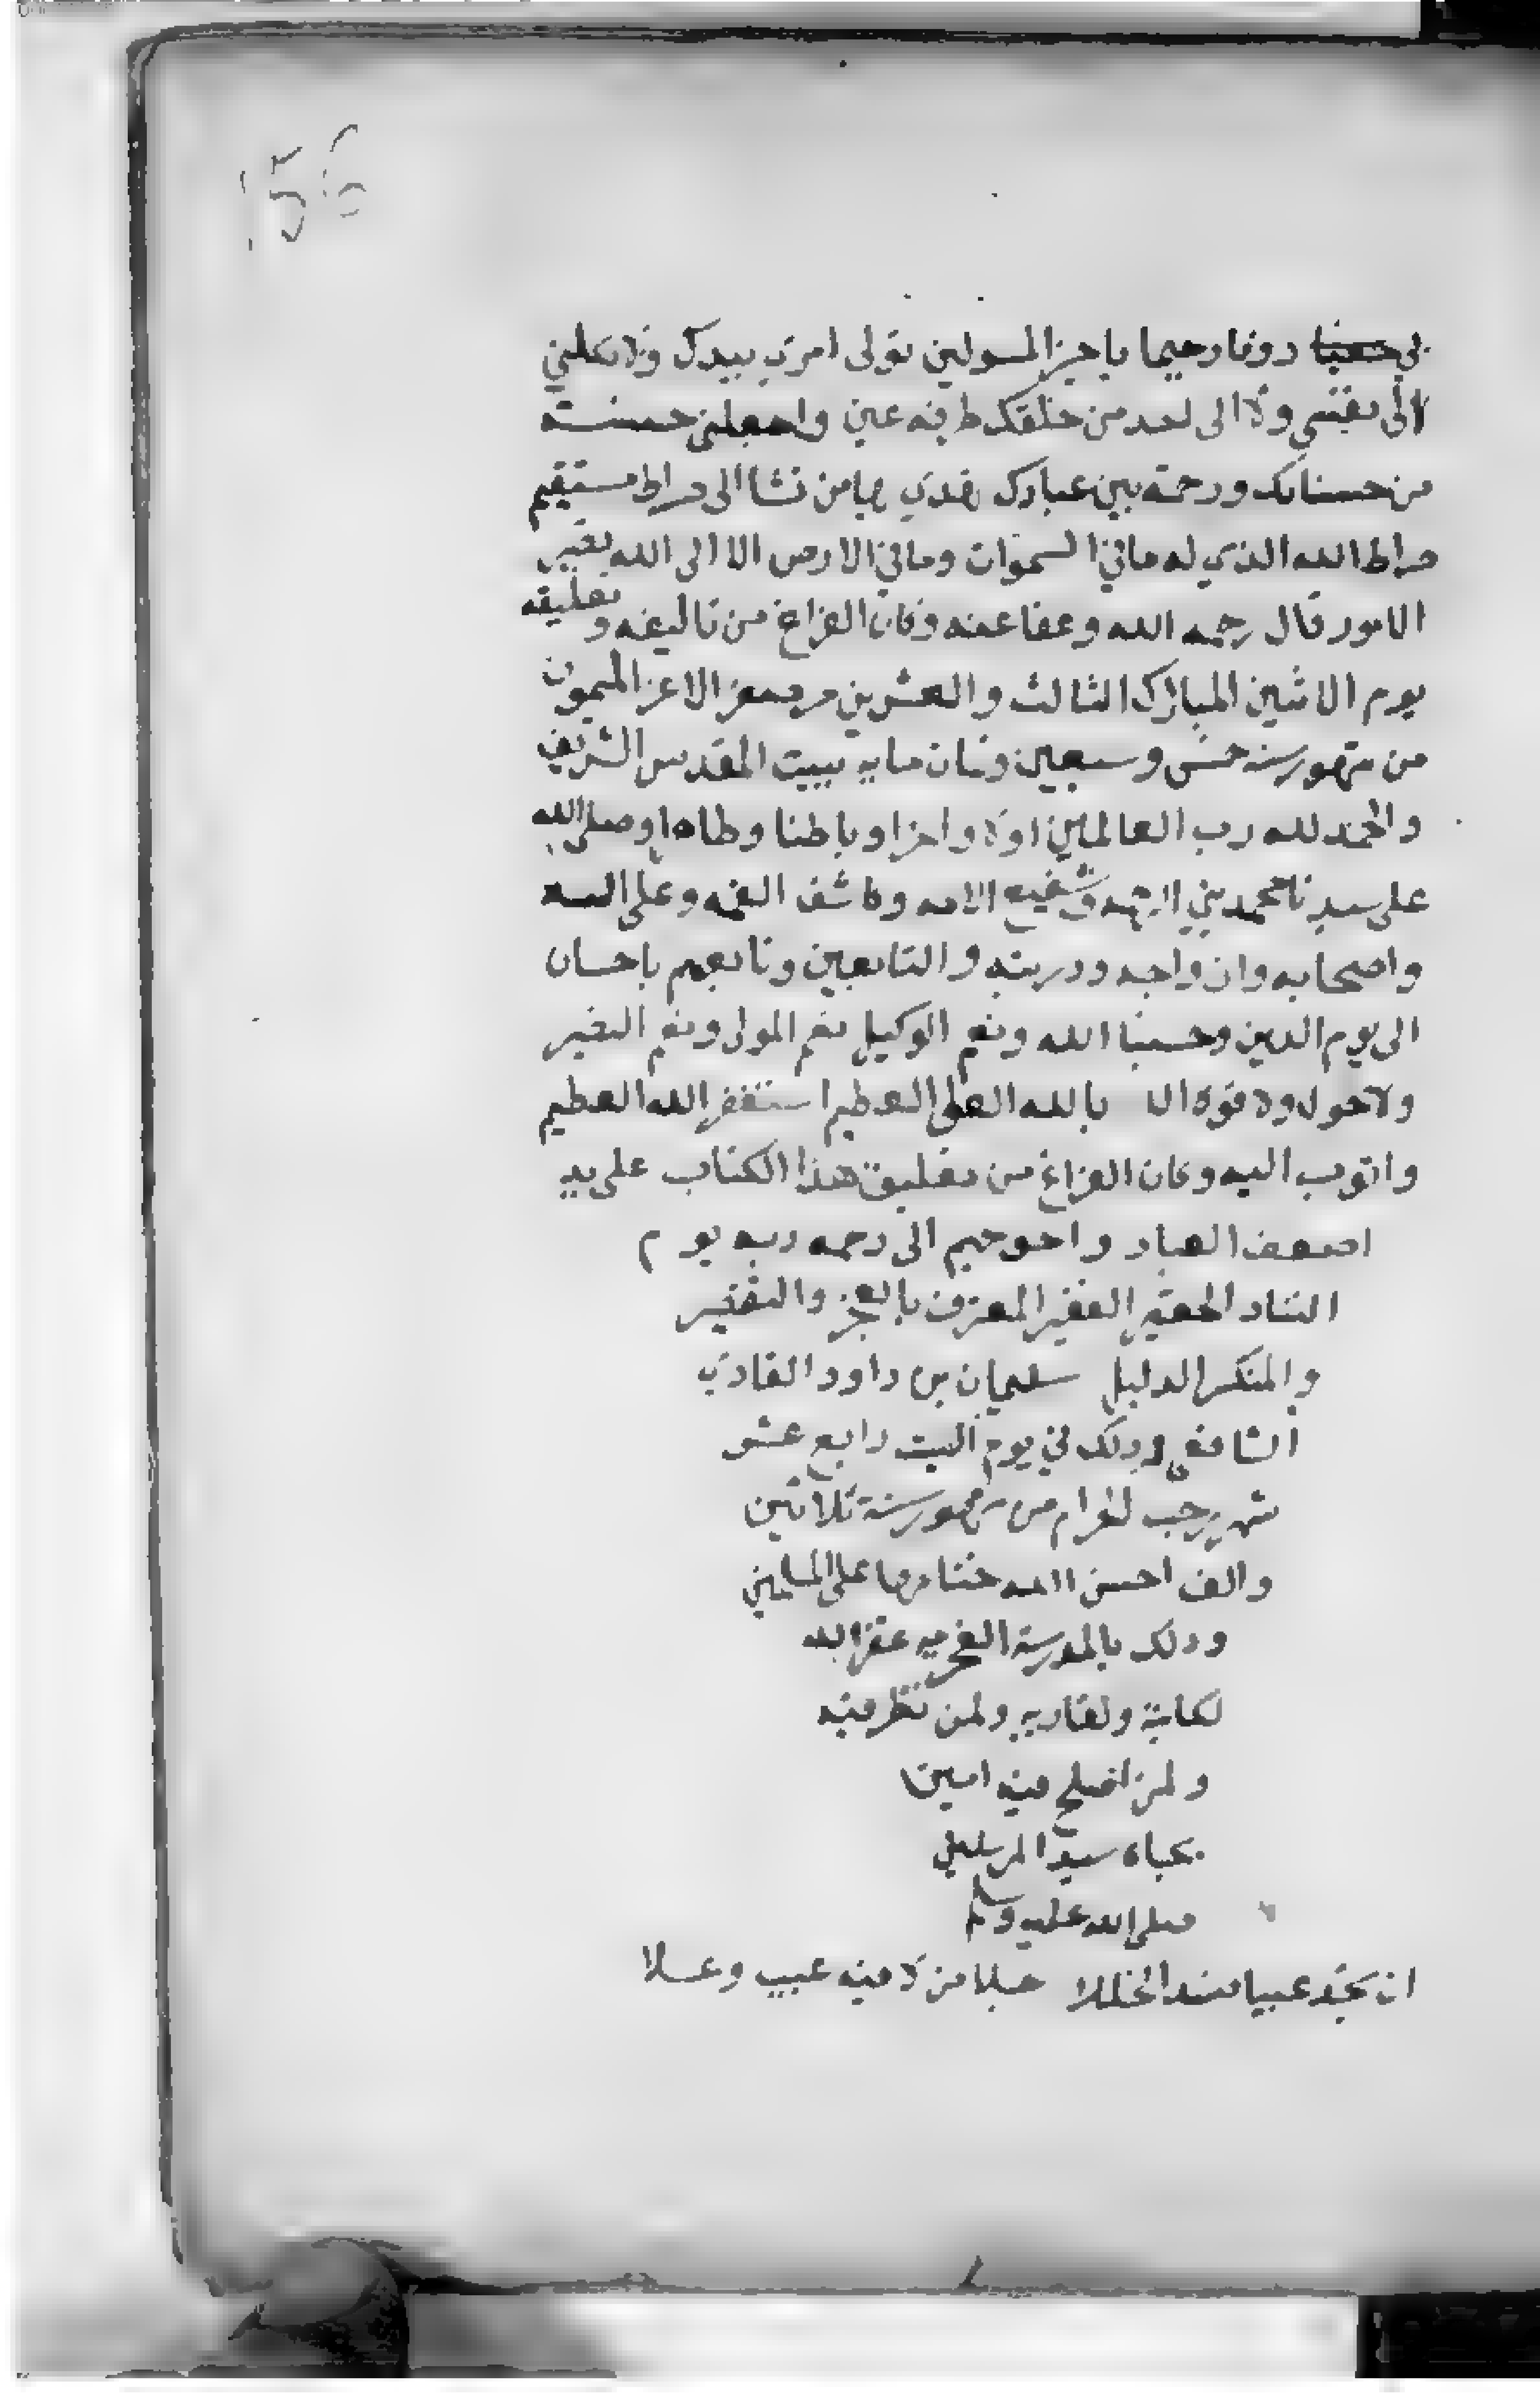 بي حفيا روفا رحيما يا خير المسولين تولى امري بيدك ولا تكلني
الى نفسي ولا الى احد من خلقك طرفه عين واجعلني حسنة
من حسناتك ورحمة بين عبادك تهدي بها من تشا الى صراط مستقيم
صراط الله الذي له ما في السموات وما في الارض الا الى الله تصير
الامور قال رحمه الله وعفا عنه وكان الفراغ من تاليفه وتعليقه
يوم الاثنين المبارك الثالث والعشرين من صفر الاغر الميمون
من شهور سنة خمس وسبعين وثمان مايه ببيت المقدس الشريف
والحمد لله رب العالمين اولا واخرا وباطنا وظاهرا وصلى الله
على سيدنا محمد نبي الرحمه شفيع الامه وكاشف الغمه وعلى اله
واصحابه وازواجه وذريته والتابعين وتابعيهم باحسان
الى يوم الدين وحسبنا الله ونعم الوكيل نعم المولى ونعم النصير
ولا حول ولا قوة الا بالله العلي العظيم استغفر الله العظيم
واتوب اليه وكان الفراغ من تعليق هذا الكتاب على يد
اضعف العباد واحوجهم الى رحمه ربه يوم
التناد الحقير الفقير المعترف بالعجز والتقصير
والمنكسر الذليل سليمان بن داود القادري
الشافعي وذلك في يوم السبت رابع عشر
شهر رجب الحرام من شهور سنة ثلاثين
والف احسن الله ختامها على المسلمين
وذلك بالمدرسة الفخريه غفر الله
لكاتبه ولقاريه ولمن نظر فيه
ولمن اصلح فيه امين
بجاه سيد المرسلين
صلى الله عليه وسلم
ان تجد عيبا فسد الخللا جل من لا فيه عيب وعلا